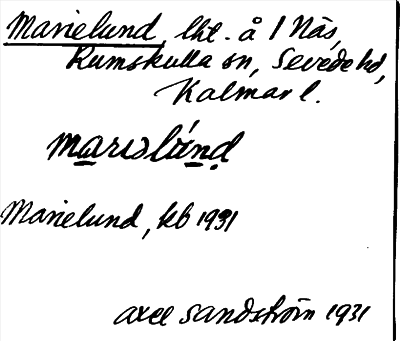 Marielund, lht. å 1 Näs,
Rumskulla sn, Sevede hd,
Kalmar l.
Marielund, kb 1931
Axel Sandström 1931